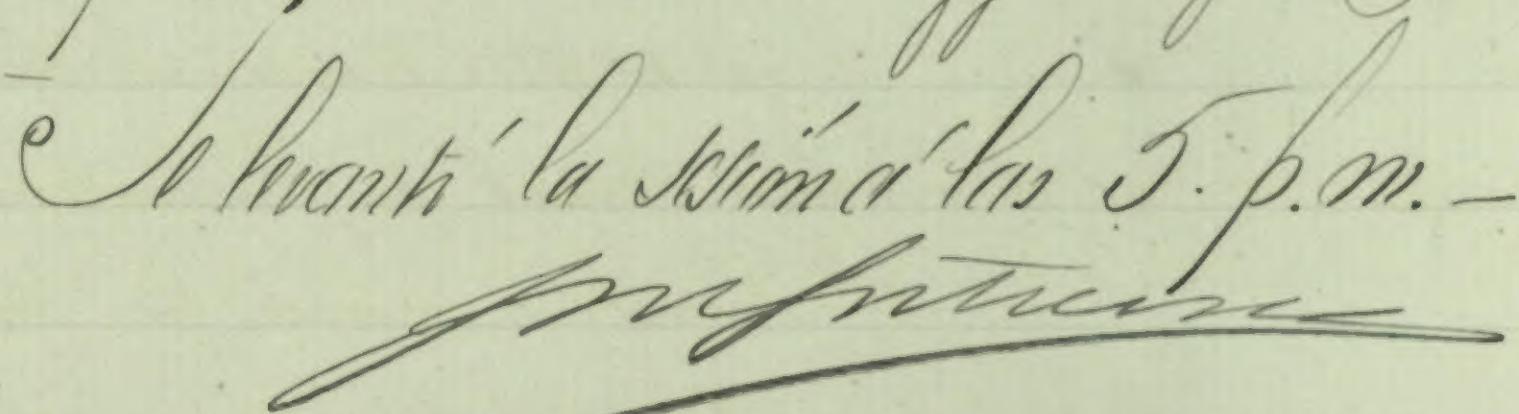 Se levantó la sesión á las 5. p. m. —